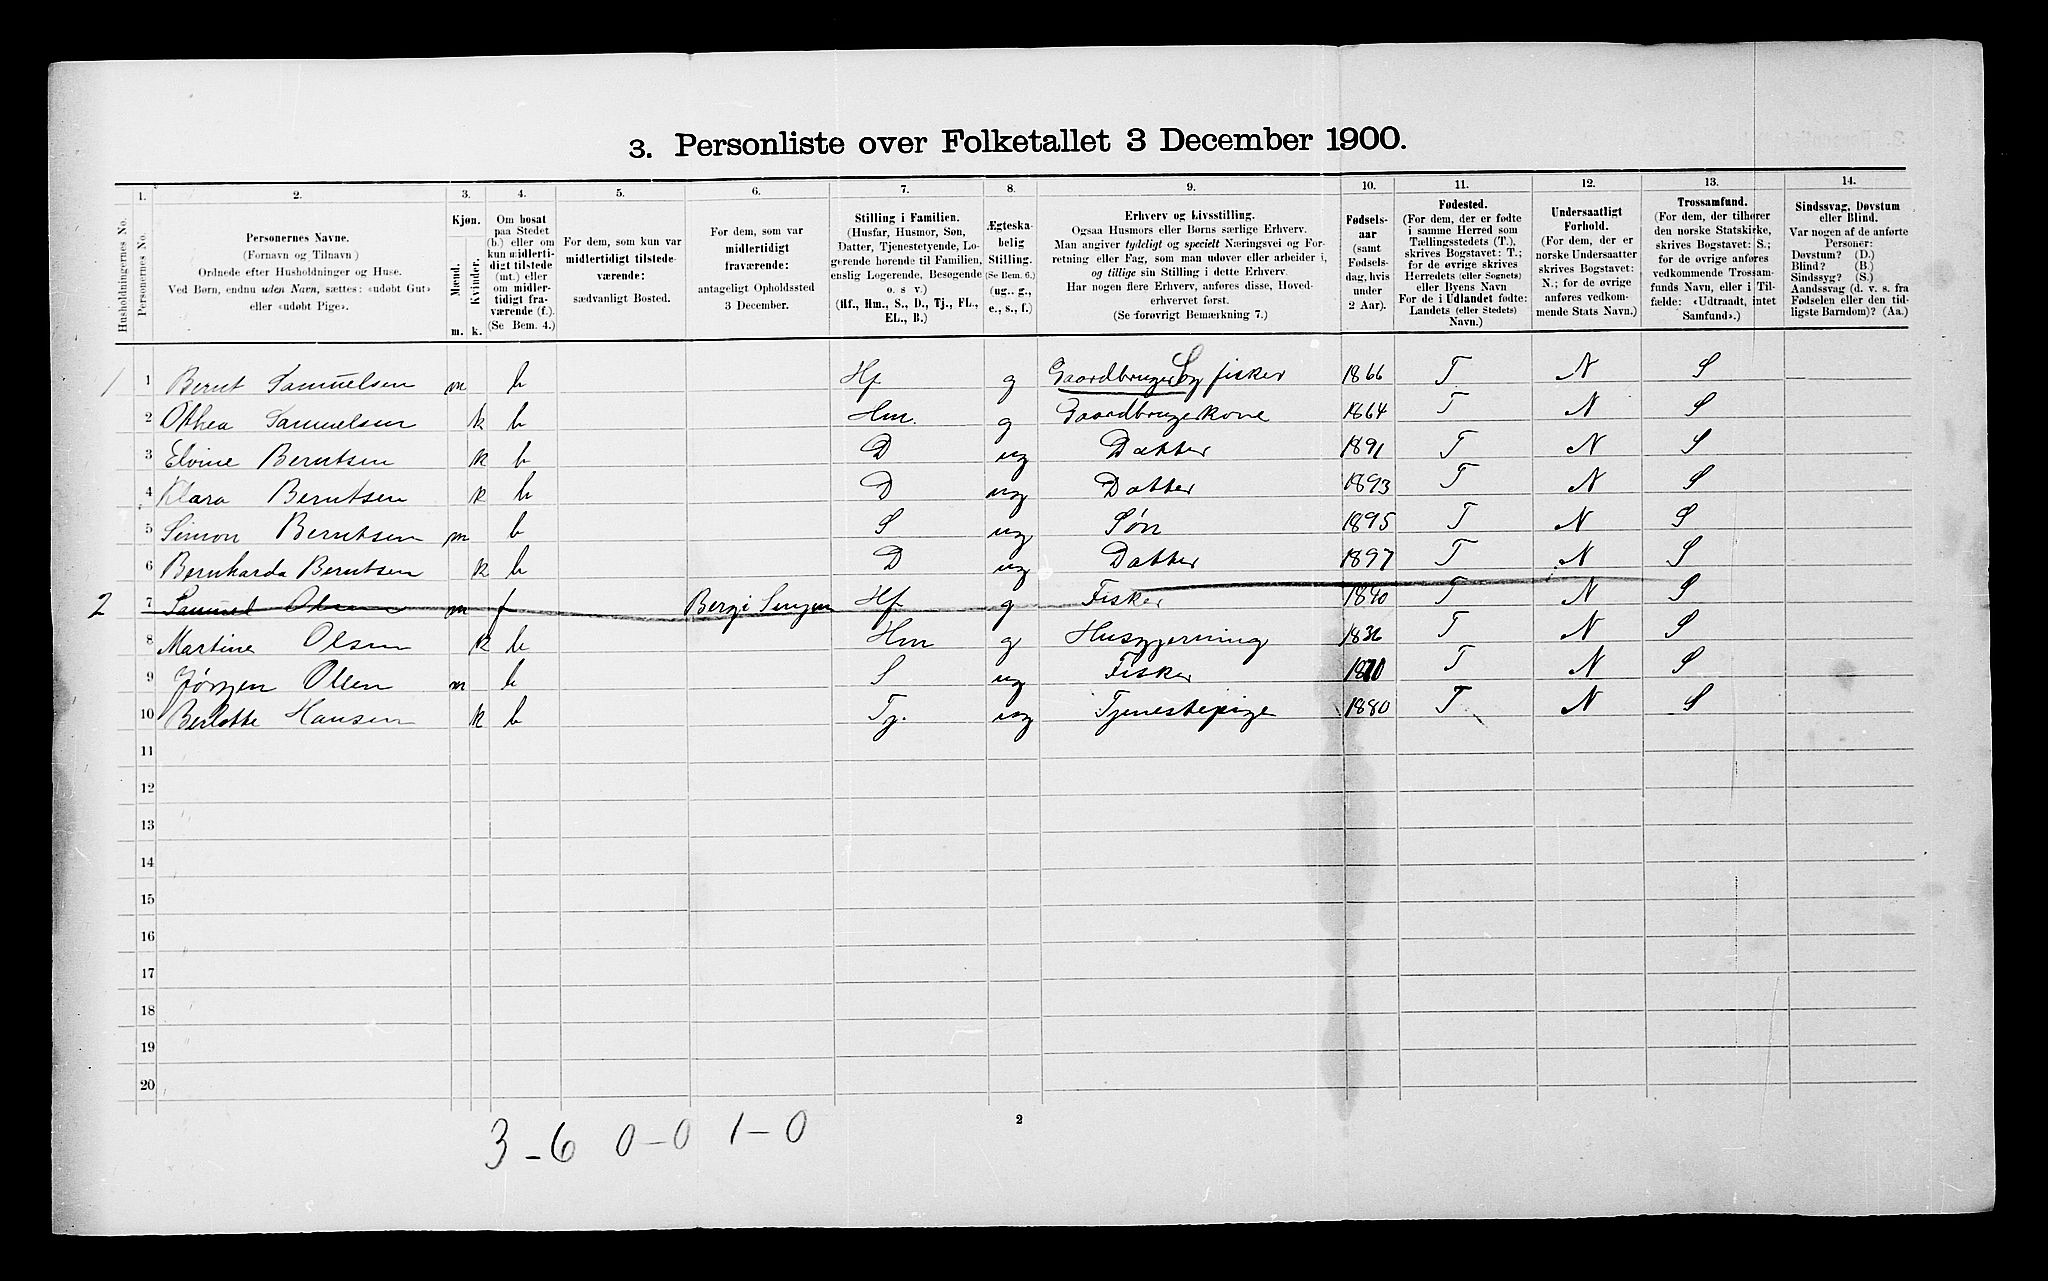 3. Personliste over Folketallet 3 December 1900.
1. 2. 3. 4. 5. 6. 7. 8. 9. 10. 11. 12. 13. 14.
Husholdningernes No.
Personernes No.
Personernes Navne.
(Fornavn og Tilnavn)
Ordnede efter Husholdninger og Huse.
Ved Børn, endnu uden Navn, sættes: «udøbt Gut»
eller «udøbt Pige».
Kjøn.
Mænd.
Kvinder.
m. k.
Om bosat
paa Stedet
(b.) eller om
kun midlerti-
digt tilstede
(mt.) eller
om midler-
tidigt fra-
værende (f.).
(Se Bem. 4.)
For dem, som kun var
midlertidigt tilstede-
værende:
sædvanligt Bosted.
For dem, som var
midlertidigt
fraværende:
antageligt Opholdssted
3 December.
Stilling i Familien.
(Husfar, Husmor, Søn,
Datter, Tjenestetyende, Lo-
gerende hørende til Familien,
enslig Logerende, Besøgende
o. s v.)
(Hf., Hm., S., D., Tj., FL.,
EL., B.)
Ægteska-
belig
Stilling.
(Se Bem. 6.)
(ug., g.,
e., s., f.)
Erhverv og Livsstilling.
Ogsaa Husmors eller Børns særlige Erhverv.
Man angiver tydeligt og specielt Næringsvei og For-
retning eller Fag, som man udøver eller arbeider i,
og tillige sin Stilling i dette Erhverv.
Har nogen flere Erhverv, anføres disse, Hoved-
erhvervet først.
(Se forøvrigt Bemærkning 7.)
Fødsels-
aar
(samt
Fødsels-
dag, hvis
under
2 Aar).
Fødested.
(For dem, der er fødte
i samme Herred som
Tællingsstedets (T.),
skrives Bogstavet: T.;
for de øvrige skrives
Herredets (eller Sognets)
eller Byens Navn
For de i Udlandet fødte:
Landets (eller Stedets)
Navn.)
Undersaatligt
Forhold.
(For dem, der er
norske Undersaatter
skrives Bogstavet:
N.; for de øvrige
anføres vedkom-
mende Stats Navn.)
Trossamfund.
(For dem, der tilhører
den norske Statskirke,
skrives Bogstavet: S.;
for de øvrige anføres
vedkommende Trossam-
funds Navn, eller i Til-
fælde: «Udtraadt, intet
Samfund».)
Sindssvag, Døvstum
eller Blind.
Var nogen af de anførte
Personer:
Døvstum? (D.)
Blind? (B.)
Sindssyg? (S.)
Aandssvag (d. v. s. fra
Fødselen eller den tid-
ligste Barndom)? (Aa.)
1 1 Bernt Samuelsen m b Hf g Gaardbruger S og fisker 1866 T N S
2 Othea Samuelsen k b Hm. g Gaardbrugerkone 1864 T N S
3 Elvine Berntsen k b D ug Datter 1891 T N S
4 Klara Berntsen k b D ug Datter 1893 T N S
5 Simon Berntsen m b S ug Søn 1895 T N S
6 Bernharda Berntsen k b D ug Datter 1897 T N S
2 7 Samuel Olsen m f Senjen Hf g Fisker 1840 T N S
8 Martine Olsen k b Hm g Husgjerning T N S
9 Jørgen Olsen m b S ug Fisker 1870 T N S
10 Hansen k b Tj. ug Tjenestepige 1880 T N S
11
12
13
14
15
16
17
18
19
20
2
3-6 0-0 1-0